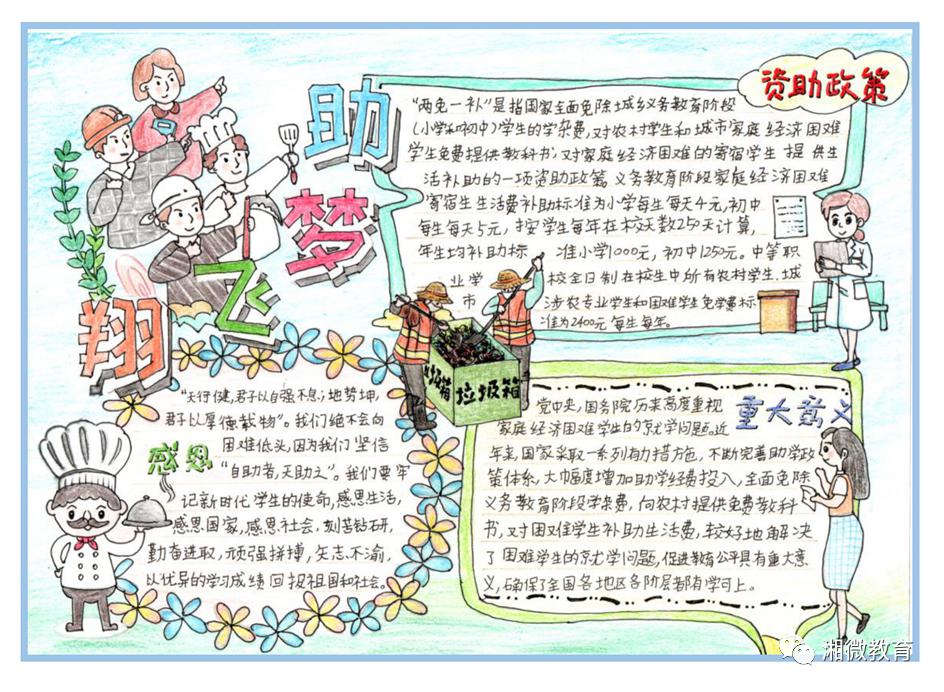 助
梦
飞
翔
资助政策
"两免一补"是指国家全面免除城乡义务教育阶段
(小学和初中)学生的学杂费,对农村学生和城市家庭经济困难
学生免费提供教科书,对家庭经济困难的寄宿学生提供生
活补助的一项资助政策,义务教育阶段家庭经济困难
寄宿生生活费补助标准为小学每生每天4元,初中
每生每天5元,按学生每年在校天数250天计算,
年生均补助标准小学1000元,初中1250元。中等职
业学校全日制在校生中所有农村学生、城
市涉农专业学生和困难学生免学费标
准为2400元每生每年。
垃圾箱
垃圾箱
感恩
"天行健,君子以自强不息;地势坤,
君子以厚德载物"。我们绝不会向
困难低头,因为我们坚信
"自助者,天助之"。我们要牢
记新时代学生的使命,感恩生活,
感恩国家,感恩社会,刻苦钻研,
勤奋进取,顽强拼搏,矢志不渝,
以优异的学习成绩回报祖国和社会。
重大意义
党中央,国务院历来高度重视
家庭经济困难学生的就学问题。近
年来,国家采取一系列有力措施,不断完善助学政
策体系,大幅度增加助学经费投入,全面免除
义务教育阶段学杂费,向农村提供免费教科
书,对困难学生补助生活费,较好地解决
了困难学生的就学问题,促进教育公平具有重大意
义,确保了全国各地区各阶层都有学可上。
湘微教育